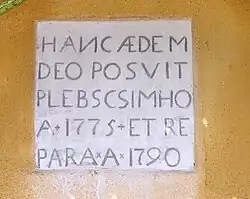 ·HANC ÆDEM
DEO POSVIT
PLEBS CSIMHO
A+1775+ET RE
PARA×A×1790